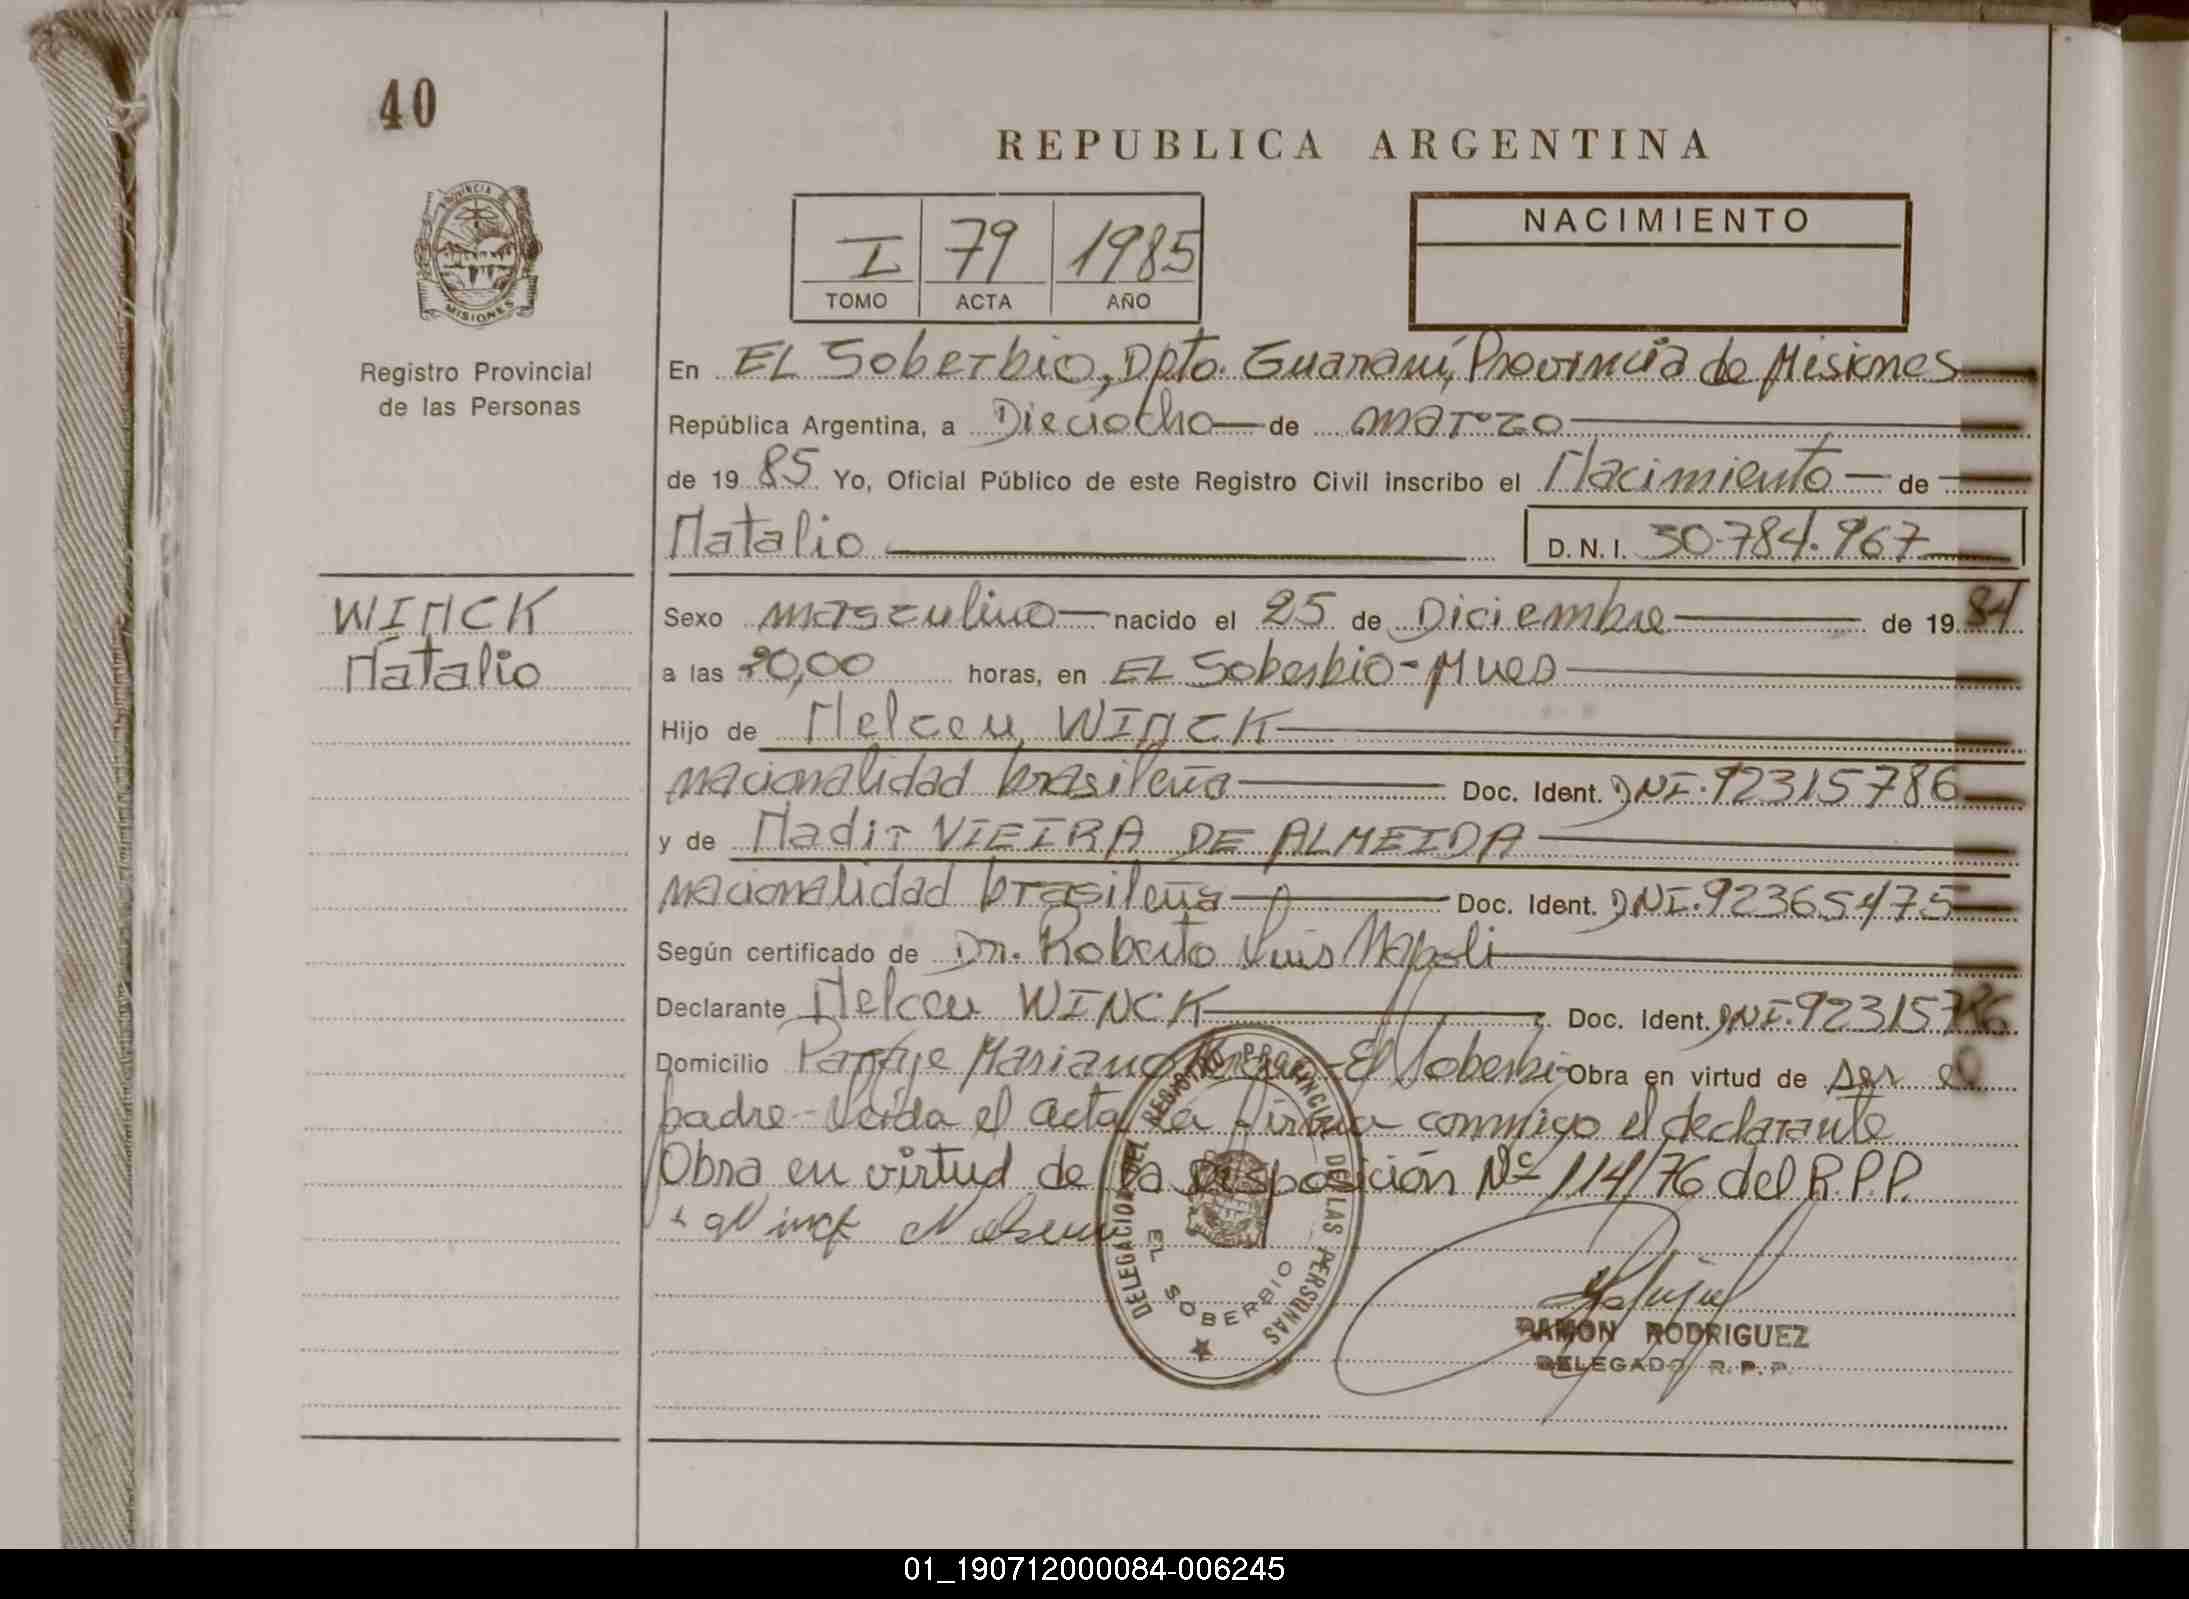 40
REPUBLICA ARGENTINA
PROVINCIA DE
MISIONES
Registro Provincial
de las Personas
I 79 1985
TOMO ACTA AÑO
NACIMIENTO
En EL Soberbio, Dpto. Guaraní, Provincia de Misiones
República Argentina, a Dieciocho de marzo
de 19 85 Yo, Oficial Público de este Registro Civil inscribo el Nacimiento de
Natalio D.N.I. 30.784.967
WINCK
Natalio
Sexo masculino nacido el 25 de Diciembre de 19 84
a las 20,00 horas, en EL Soberbio - Mnes
Hijo de Nelceu WINCK
nacionalidad brasileña Doc. Ident. DNI. 92315786
y de Nadir VIEIRA DE ALMEIDA
nacionalidad brasileña Doc. Ident. DNI. 92365475
Según certificado de Dr. Roberto Luis Napoli
Declarante Nelceu WINCK Doc. Ident. DNI. 92315786
Domicilio Paraje Mariano - El Soberbio Obra en virtud de ser el
padre - Leida el acta la firma conmigo el declarante
Obra en virtud de la Disposición Nº 114/76 del R.P.P.
DELEGACION DEL REGISTRO PROVINCIAL DE LAS PERSONAS
EL SOBERBIO
RAMON RODRIGUEZ
DELEGADO R.P.P.
01_190712000084-006245